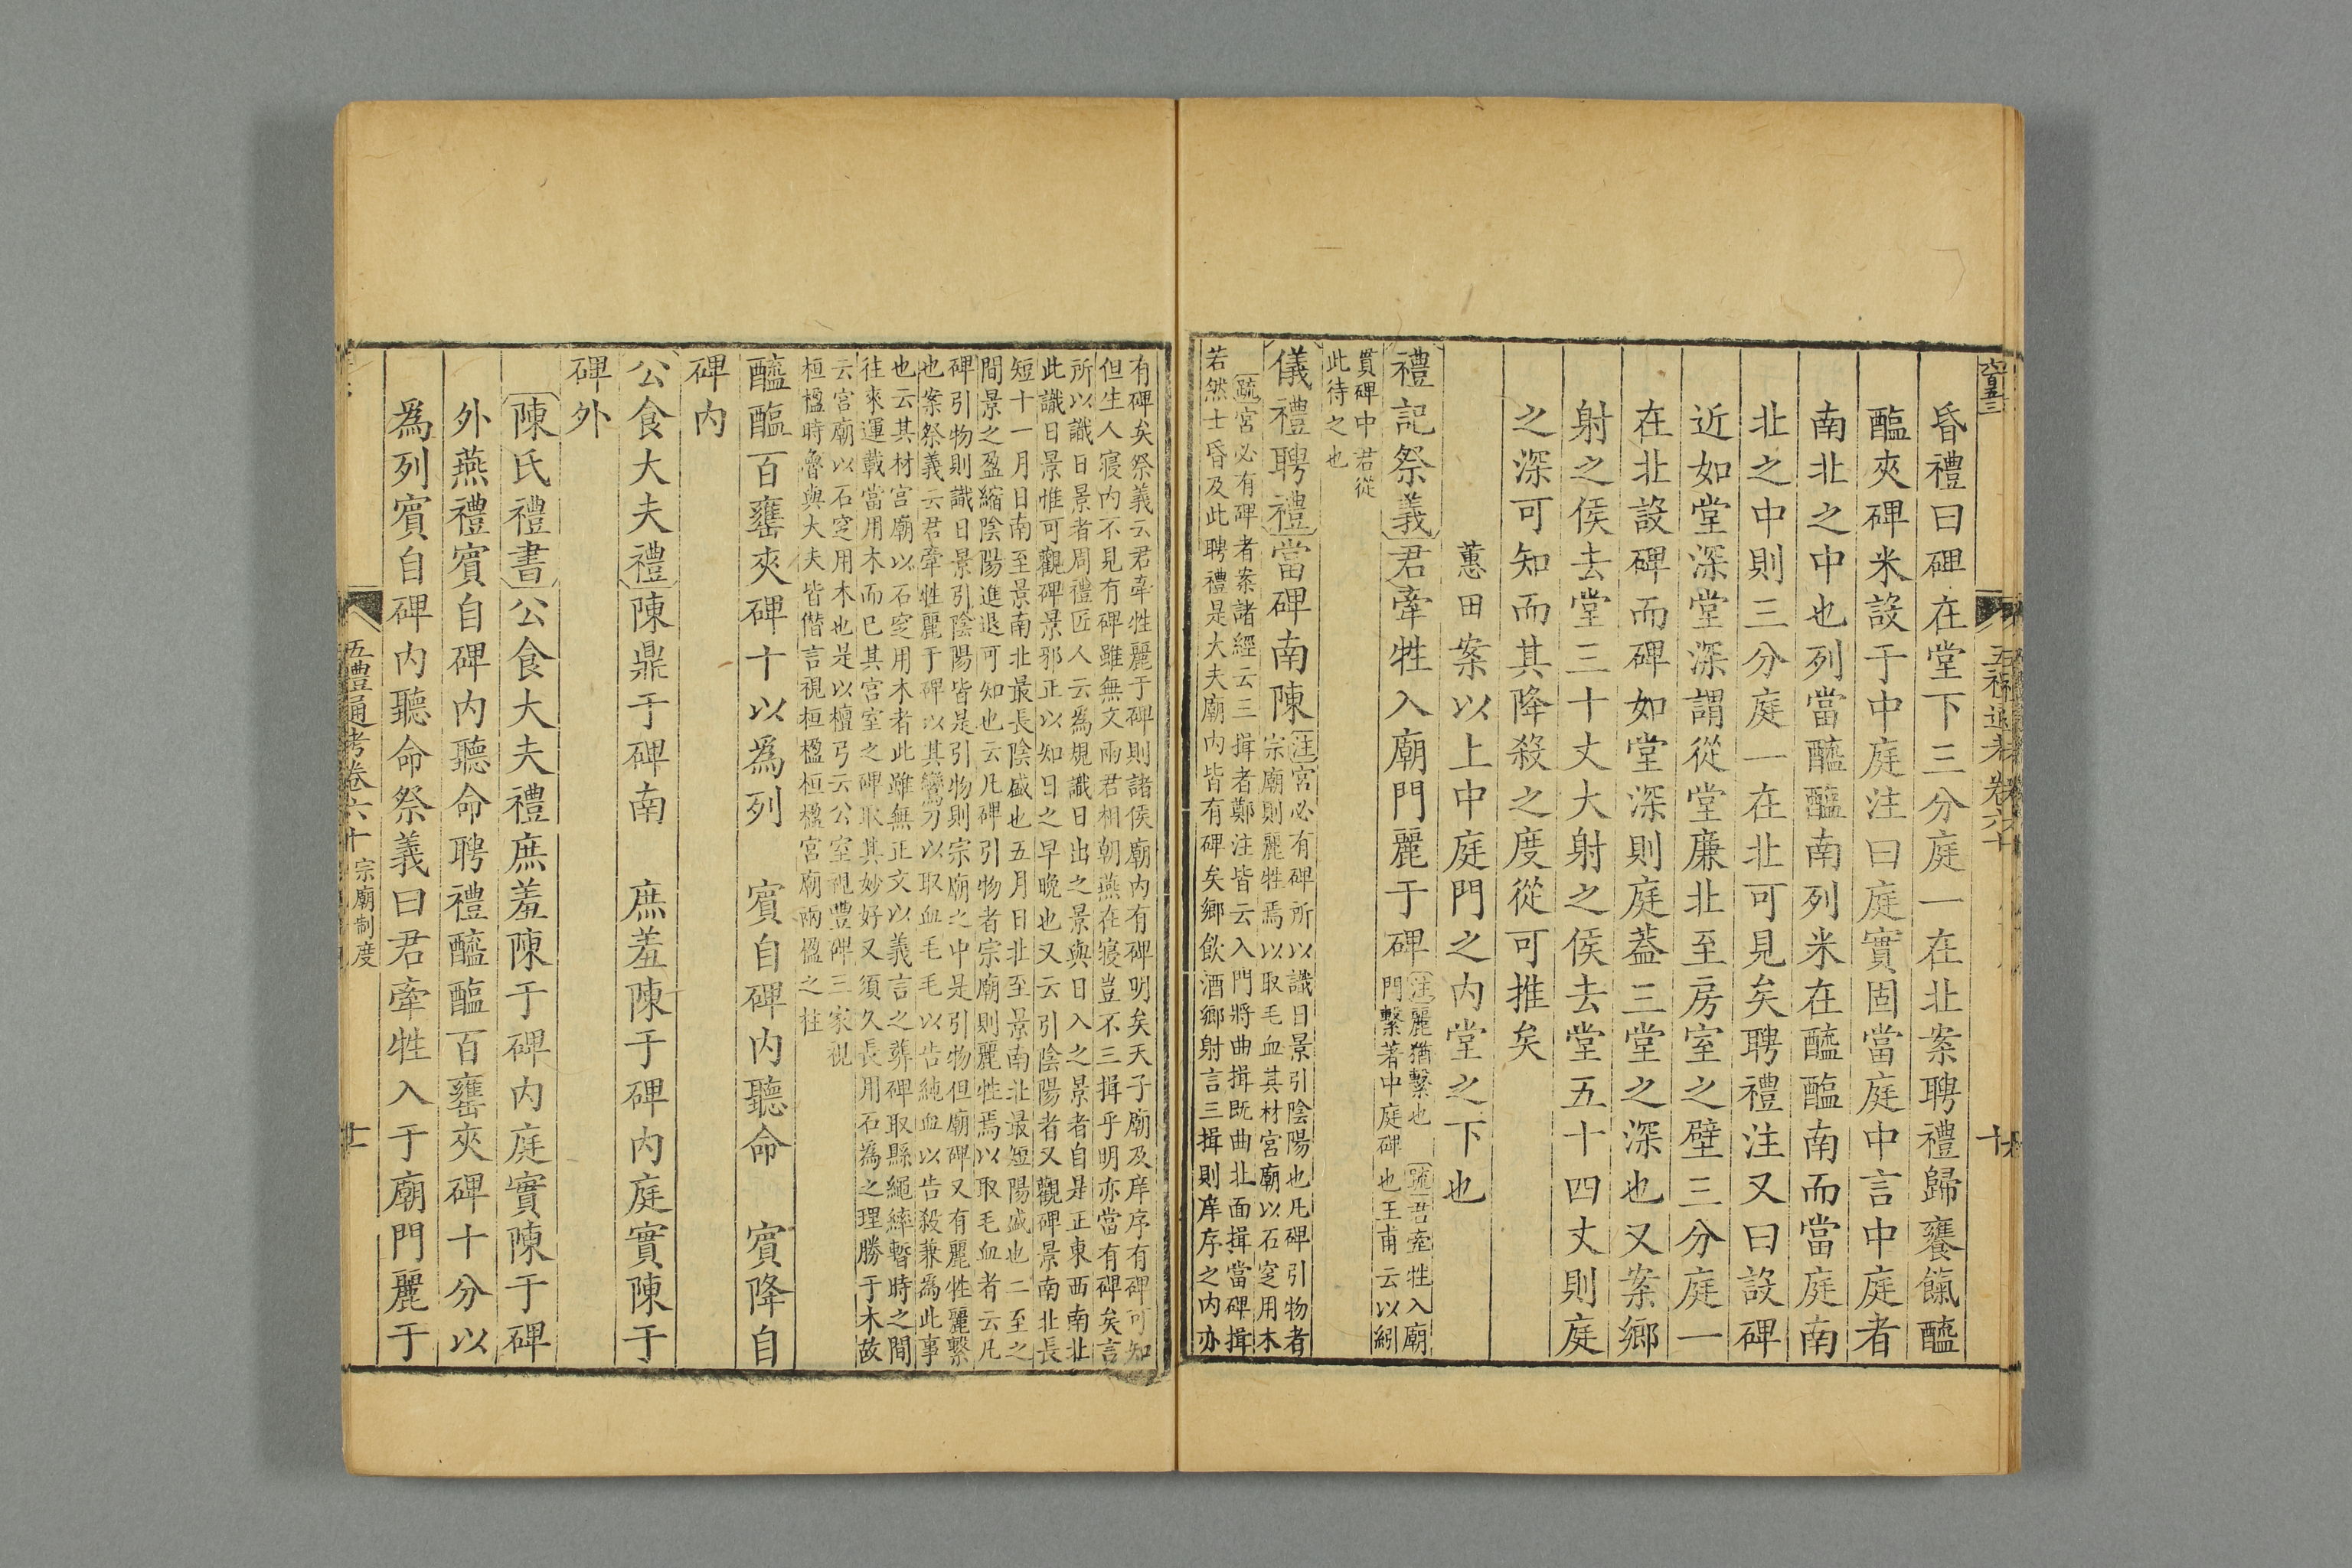 昏禮曰碑在堂下三分庭一在北案聘禮歸饔餼醯
醢夾碑米設于中庭注曰庭實固當庭中言中庭者
南北之中也列當醯醢南列米在醯醢南而當庭南
北之中則三分庭一在北可見矣聘禮注又曰設碑
近如堂深堂深謂從堂廉北至房室之壁三分庭一
在北設碑而碑如堂深則庭蓋三堂之深也又案鄉
射之侯去堂三十丈大射之侯去堂五十四丈則庭
之深可知而其降殺之度從可推矣
蕙田案以上中庭門之內堂之下也
禮記祭義君牽牲入廟門麗于碑
注麗猶繫也 疏君牽牲入廟
門繫著中庭碑也王甫云以紖
貫碑中君從
此待之也
儀禮聘禮當碑南陳
注宮必有碑所以識日景引陰陽也凡碑引物者
宗廟則麗牲焉以取毛血其材宮廟以石窆用木
疏宮必有碑者案諸經云三揖者鄭注皆云入門將曲揖既曲北面揖當碑揖
若然士昏及此聘禮是大夫廟內皆有碑矣鄉飲酒鄉射言三揖則庠序之內亦
有碑矣祭義云君牽牲麗于碑則諸侯廟內有碑明矣天子廟及庠序有碑可知
但生人寢內不見有碑雖無文兩君相朝燕在寢豈不三揖乎明亦當有碑矣言
所以識日景者周禮匠人云為規識日出之景與日入之景者自是正東西南北
此識日景惟可觀碑景邪正以知日之早晚也又云引陰陽者又觀碑景南北長
短十一月日南至景南北最長陰盛也五月日北至景南北最短陽盛也二至之
間景之盈縮陰陽進退可知也云凡碑引物者宗廟則麗牲焉以取毛血者云凡
碑引物則識日景引陰陽皆是引物則宗廟之中是引物但廟碑又有麗牲麗繫
也案祭義云君牽牲麗于碑以其鸞刀以取血毛毛以告純血以告殺兼為此事
也云其材宮廟以石窆用木者此雖無正文以義言之葬碑取縣繩繂暫時之間
往來運載當用木而已其宮室之碑取其妙好又須久長用石為之理勝于木故
云宮廟以石窆用木也是以檀弓云公室視豐碑三家視
桓楹時魯與大夫皆僭言視桓楹桓楹宮廟兩楹之柱
醯醢百罋夾碑十以為列 賓自碑內聽命 賓降自
碑內
公食大夫禮陳鼎于碑南 庶羞陳于碑內庭實陳于
碑外
陳氏禮書公食大夫禮庶羞陳于碑內庭實陳于碑
外燕禮賓自碑內聽命聘禮醯醢百罋夾碑十分以
為列賓自碑內聽命祭義曰君牽牲入于廟門麗于
五禮通考卷六十 宗廟制度